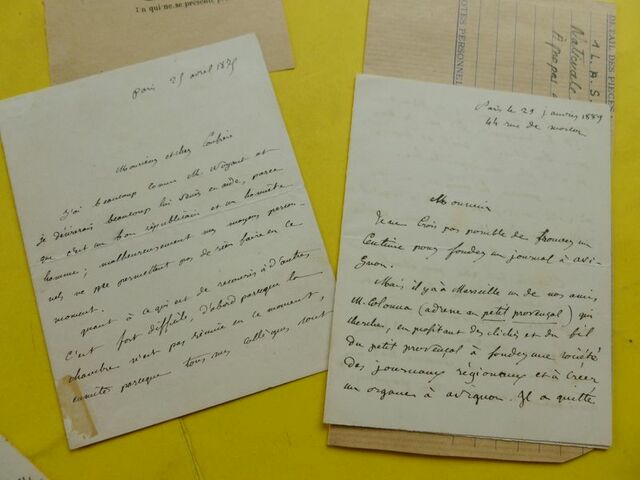 n qui ne se présente p
Paris 25 avril 1875
Monsieur et cher Confrère
J'ai beaucoup connu M. et
je désirerais beaucoup lui venir en aide, parce
que c'est un bon républicain et un honnête
homme; malheureusement mes moyens person-
nels ne me permettent pas de rien faire en ce
moment.
quant à ce qui est de recourir à d'autres
c'est fort difficile, d'abord parceque la
chambre n'est pas réunie en ce moment,
ensuite parceque tous mes collègues, sont
DÉTAIL DES PIÈCES
NOTES PERSONNEL
1 L. A. S.
à propos
Paris le 29 janvier 1889
44 rue de
Monsieur
Je ne crois pas possible de trouver un
pour fonder un journal à avi-
gnon.
Mais il y a à Marseille un de nos amis,
M. Colonna (adresse au petit provençal) qui
cherche, en profitant des clichés et du fil
du petit provençal à fonder une société
des journaux régionaux et à créer
un organe à avignon. Il a quitté